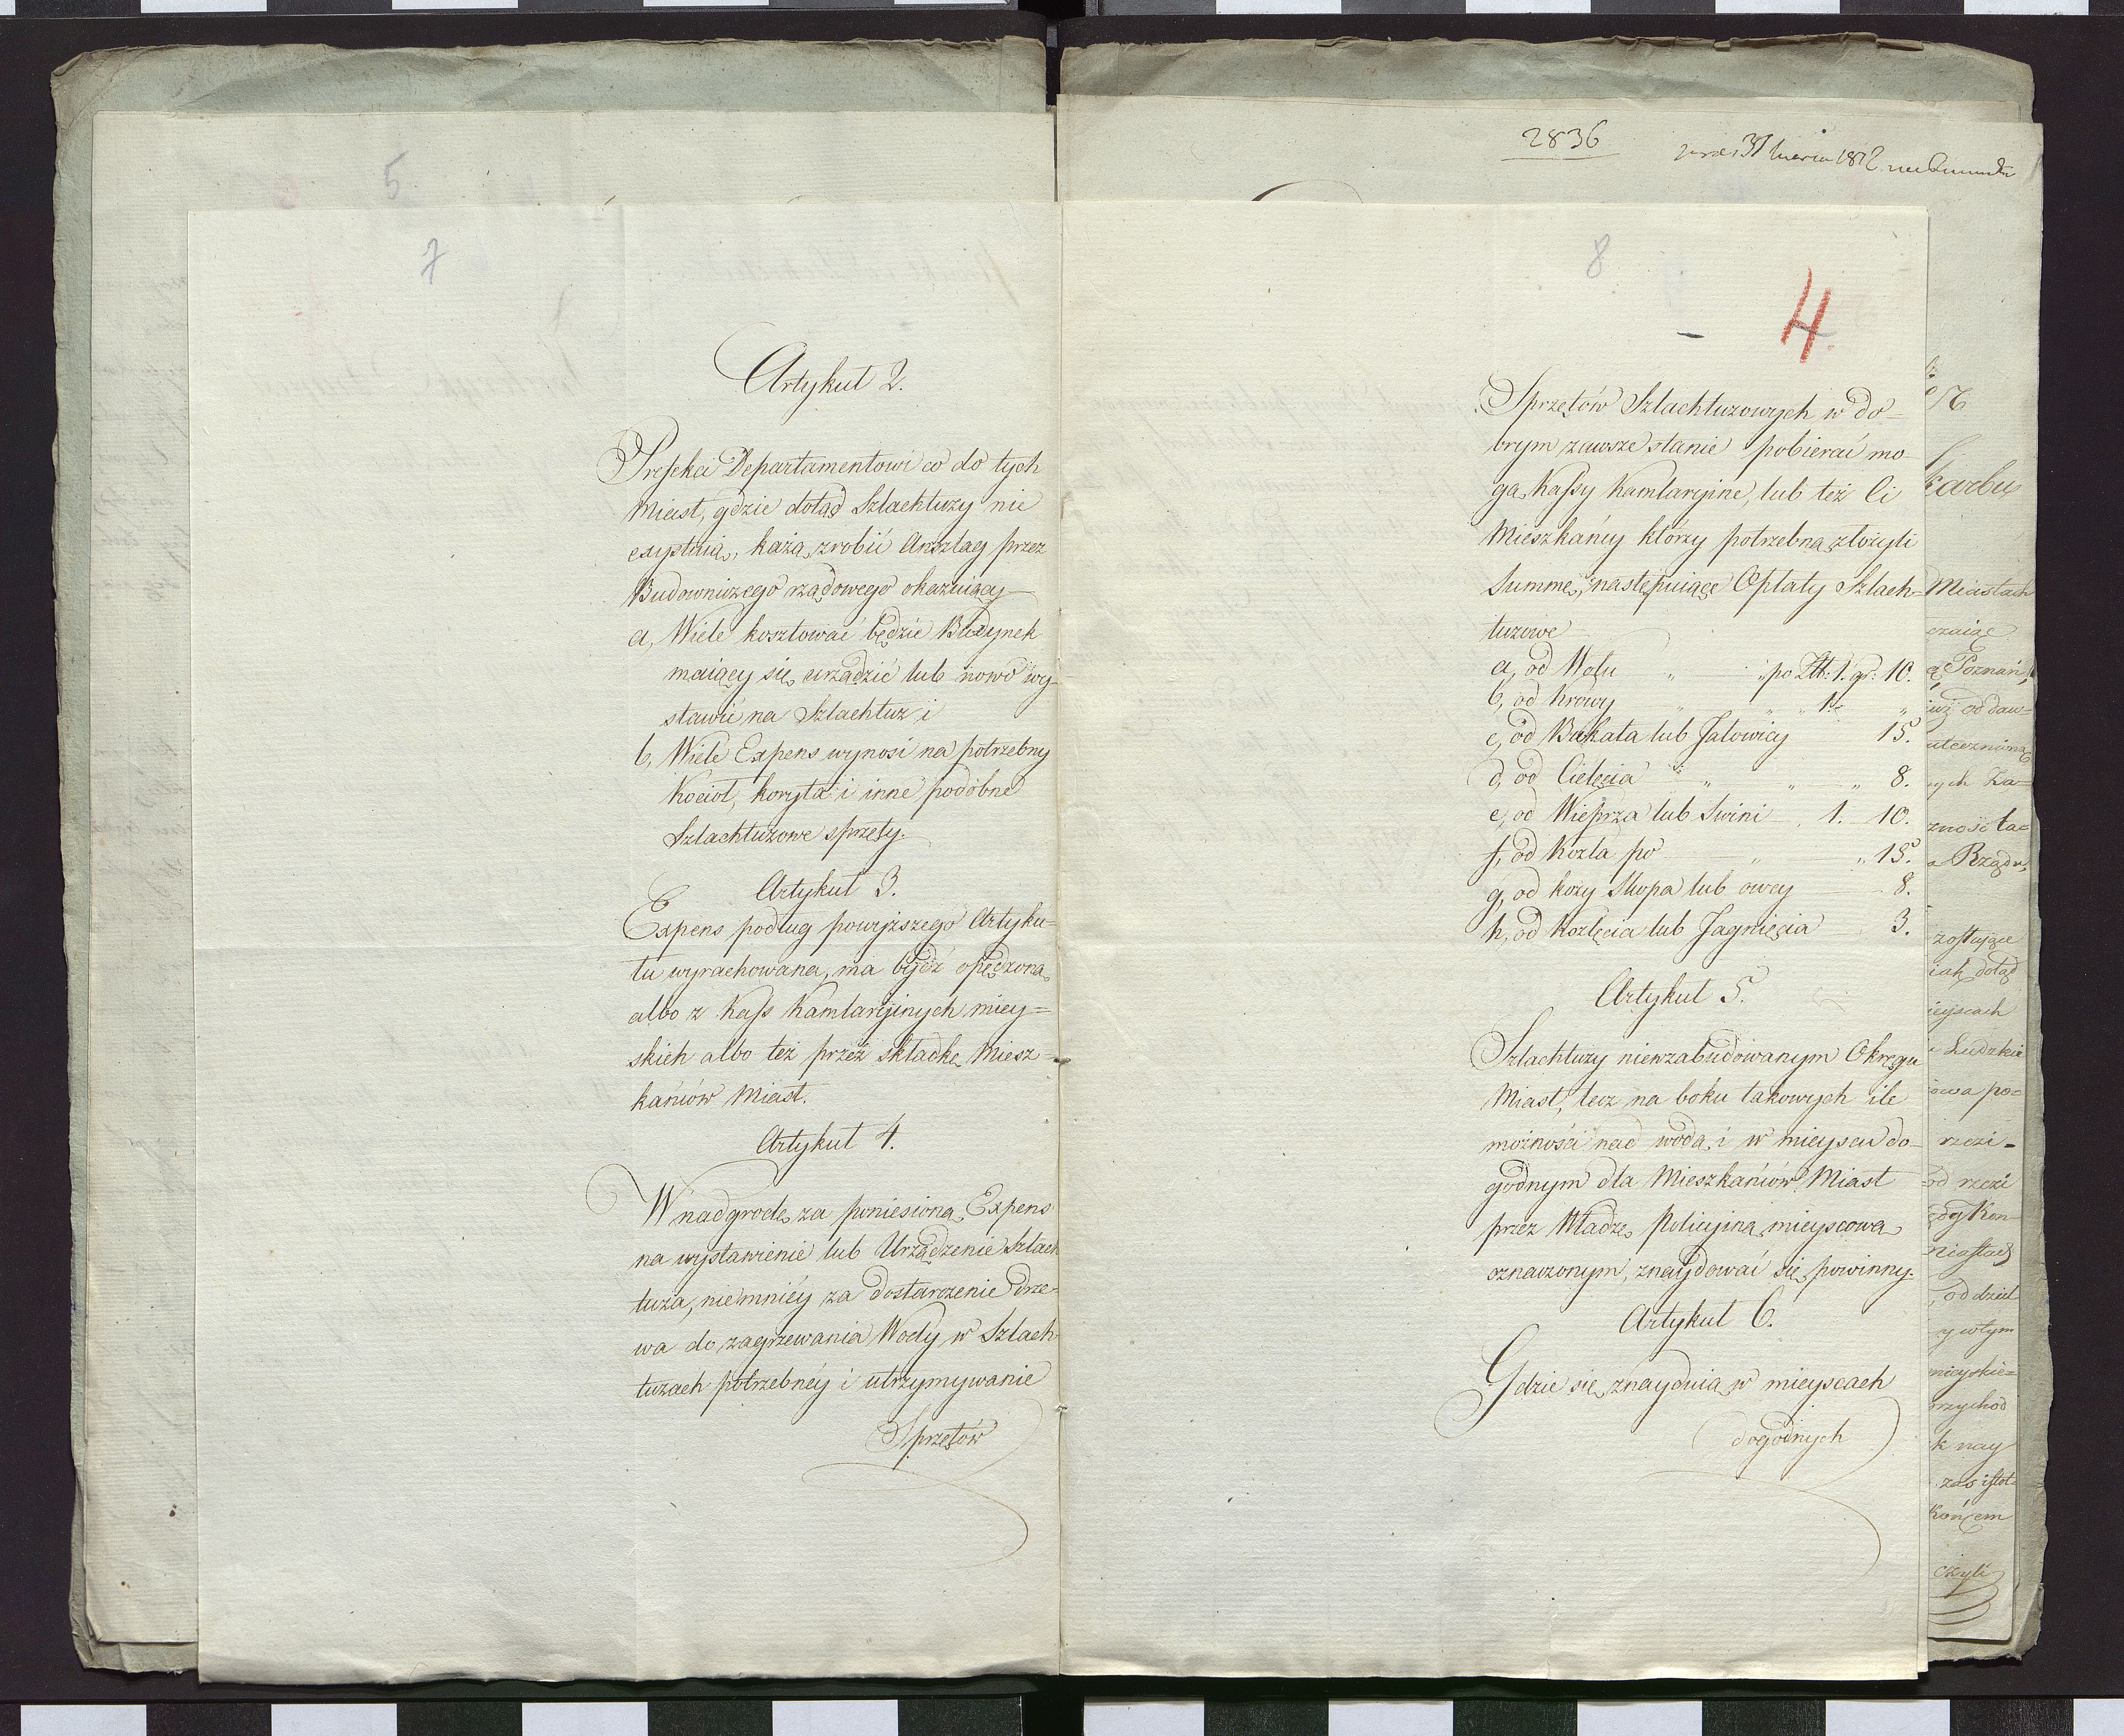 5
7
Artykuł 2.
Prefeka Departamentowi co do tych
Miast, gdzie dotąd Szlachtuzy nie
exystuią, każą zrobić Anszlag przez
Budowniczego rządowego okazuiący
a, Wiele kosztować będzie Budynek
maiący się urządzić lub nowo wy-
stawić na Szlachtuz i
b, Wiele Expens wynosi na potrzebny
Kocioł, koryta i inne podobne
Szlachtuzowe sprzęty.
Artykuł 3.
Expens podług powyższego Artyku=
łu wyrachowana, ma bydź opędzona
albo z Kass Kamlaryjnych miey=
skich albo też przez składkę Miesz-
kańców Miast.
Artykuł 4.
W nadgrodę za poniesioną Expens
na wystawienie lub Urządzenie Szlach
tuza, niemniéy za dostarczenie drze-
wa do zagrzewania Wody w Szlach
tuzach potrzebnéy i utrzymywanie
Sprzętów
2836
8
4
Sprzętów Szlachtuzowych w do-
brym zawsze stanie pobierać mo-
gą Kassy Kamlaryine, lub też Ci
Mieszkańcy którzy potrzebną złożyli
Summę, następuiące Opłaty Szlach=
tuzowe
a, od Wołu " " po Złt: 1. gr: 10.
b, od Krowy " " " 1. "
c, od Bukata lub Jałowicy 15.
d, od Cielęcia " " " 8.
e, od Wieprza lub Swini 1. 10.
f, od Kozła po " " 15.
g, od kozy Skopa lub owcy 8.
h, od Kozlęcia lub Jagnięcia 3.
Artykuł 5.
Szlachtuzy niewzabudowanym Okręgu
Miast, lecz na boku takowych ile
możności nad wodą i w mieyscu do-
godnym dla Mieszkańców Miast
przez Władzę Policyiną mieyscową
oznaczonym, znaydować się powinny.
Artykuł 6.
Gdzie się znayduią w mieyscach
dogodnych
karbu
Miastach
Poznań,
iuż od daw=
nych Za=
zność ta=
a Rządu,
zostające
iak dotąd
ieyscach
Ludzkie
owa po=
rzezi=
od rzezi
Kon-
, oddziel
y w tym
mieyskie=
rzychod
k nay
zaś istot=
Końcem
czyli